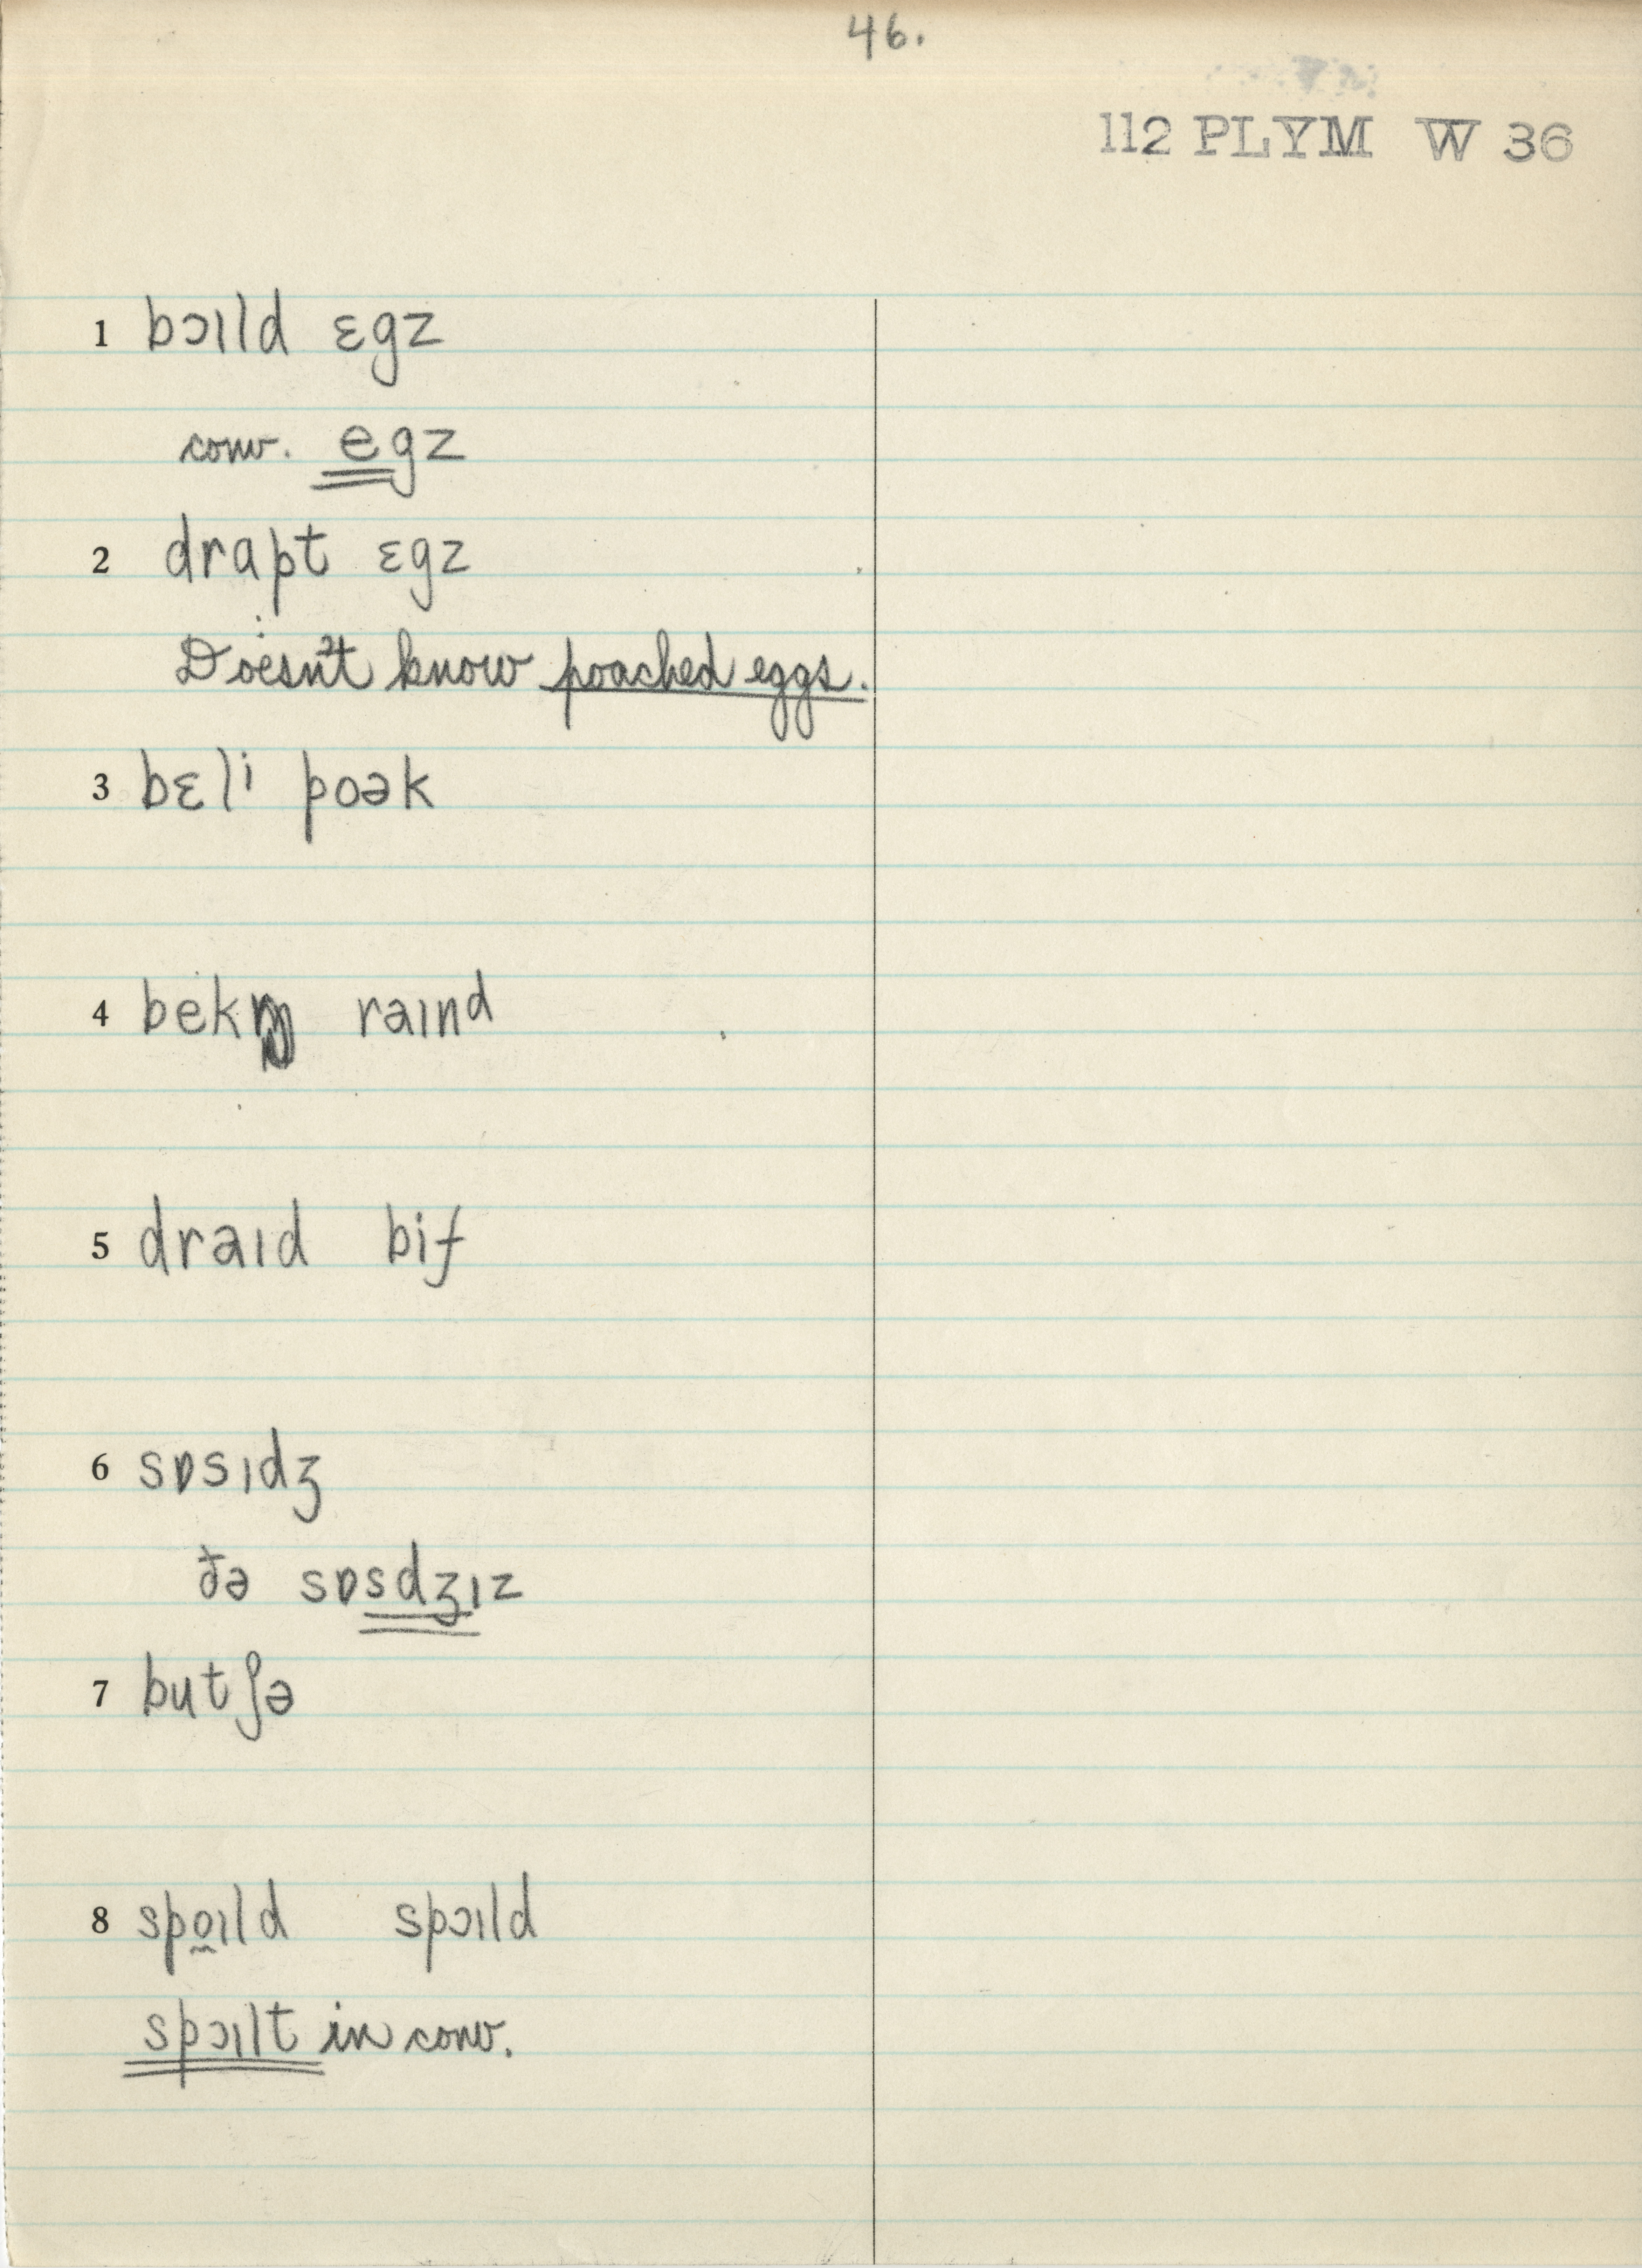 46.
112 PLYM W 36
1 bɔɪld ɛgz
conv. egz
2 drapt ɛgz
Doesn't know poached eggs.
3 bɛli poək
4 raɪnd
5 draɪd bif
6 sɒsɪdʒ
ðə sɒsdʒɪz
7 butʃə
8 spo̰ɪld spɔɪld
spɔɪlt in conv.